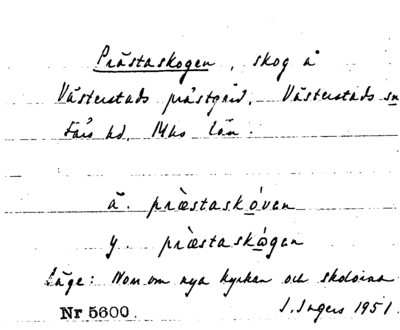 Prästaskogen, skog å
Västerstads prästgård, Västerstads sn
Färs hd, Mhs län.
ä. præ̀staskóven
y. præ̀staskógen
Läge: Norr om nya kyrkan och skolorna
Nr 5600. I. Ingers 1951.